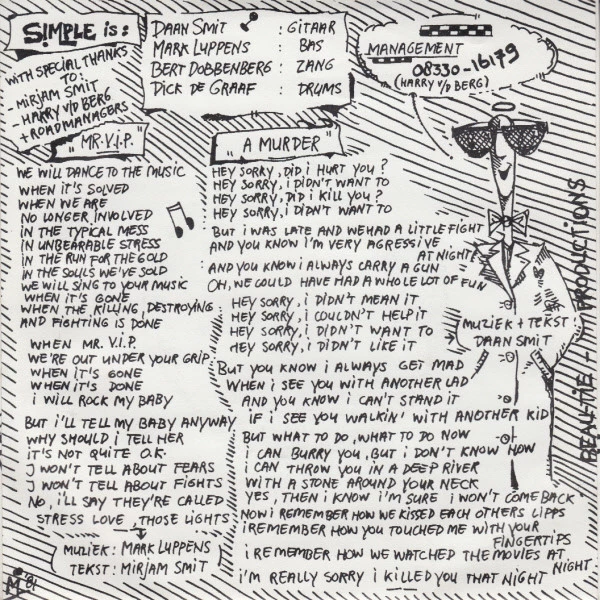 S!MPLE is:
DAAN SMIT : GITAAR
MARK LUPPENS : BAS
BERT DOBBENBERG : ZANG
DICK DE GRAAF : DRUMS
MANAGEMENT
08330-16179
(HARRY V/D BERG)
WITH SPECIAL THANKS
TO:
- MIRJAM SMIT
- HARRY V/D BERG
+ ROADMANAGERS
"MR. V.I.P."
WE WILL DANCE TO THE MUSIC
WHEN IT'S SOLVED
WHEN WE ARE
NO LONGER INVOLVED
IN THE TYPICAL MESS
IN UNBEARABLE STRESS
IN THE RUN FOR THE GOLD
IN THE SOULS WE'VE SOLD
WE WILL SING TO YOUR MUSIC
WHEN IT'S GONE
WHEN THE KILLING, DESTROYING
AND FIGHTING IS DONE
WHEN MR. V.I.P.
WE'RE OUT UNDER YOUR GRIP
WHEN IT'S GONE
WHEN IT'S DONE
I WILL ROCK MY BABY
BUT I'LL TELL MY BABY ANYWAY
WHY SHOULD I TELL HER
IT'S NOT QUITE O.K.
I WON'T TELL ABOUT FEARS
I WON'T TELL ABOUT FIGHTS
NO, I'LL SAY THEY'RE CALLED
STRESS LOVE, THOSE LIGHTS
MUZIEK: MARK LUPPENS
TEKST: MIRJAM SMIT
"A MURDER"
HEY SORRY, DID I HURT YOU?
HEY SORRY, I DIDN'T WANT TO
HEY SORRY, DID I KILL YOU?
HEY SORRY, I DIDN'T WANT TO
BUT I WAS LATE AND WE HAD A LITTLE FIGHT
AND YOU KNOW I'M VERY AGRESSIVE
AT NIGHT
AND YOU KNOW I ALWAYS CARRY A GUN
OH, WE COULD HAVE HAD A WHOLE LOT OF FUN
HEY SORRY, I DIDN'T MEAN IT
HEY SORRY, I COULDN'T HELP IT
HEY SORRY, I DIDN'T WANT TO
HEY SORRY, I DIDN'T LIKE IT
BUT YOU KNOW I ALWAYS GET MAD
WHEN I SEE YOU WITH ANOTHER LAD
AND YOU KNOW I CAN'T STAND IT
IF I SEE YOU WALKIN' WITH ANOTHER KID
BUT WHAT TO DO, WHAT TO DO NOW
I CAN BURRY YOU, BUT I DON'T KNOW HOW
I CAN THROW YOU IN A DEEP RIVER
WITH A STONE AROUND YOUR NECK
YES, THEN I KNOW I'M SURE I WON'T COME BACK
NOW I REMEMBER HOW WE KISSED EACH OTHERS LIPPS
I REMEMBER HOW YOU TOUCHED ME WITH YOUR
FINGERTIPS
I REMEMBER HOW WE WATCHED THE MOVIES AT
NIGHT
I'M REALLY SORRY I KILLED YOU THAT NIGHT
MUZIEK + TEKST:
DAAN SMIT
PRODUCTIONS
'81